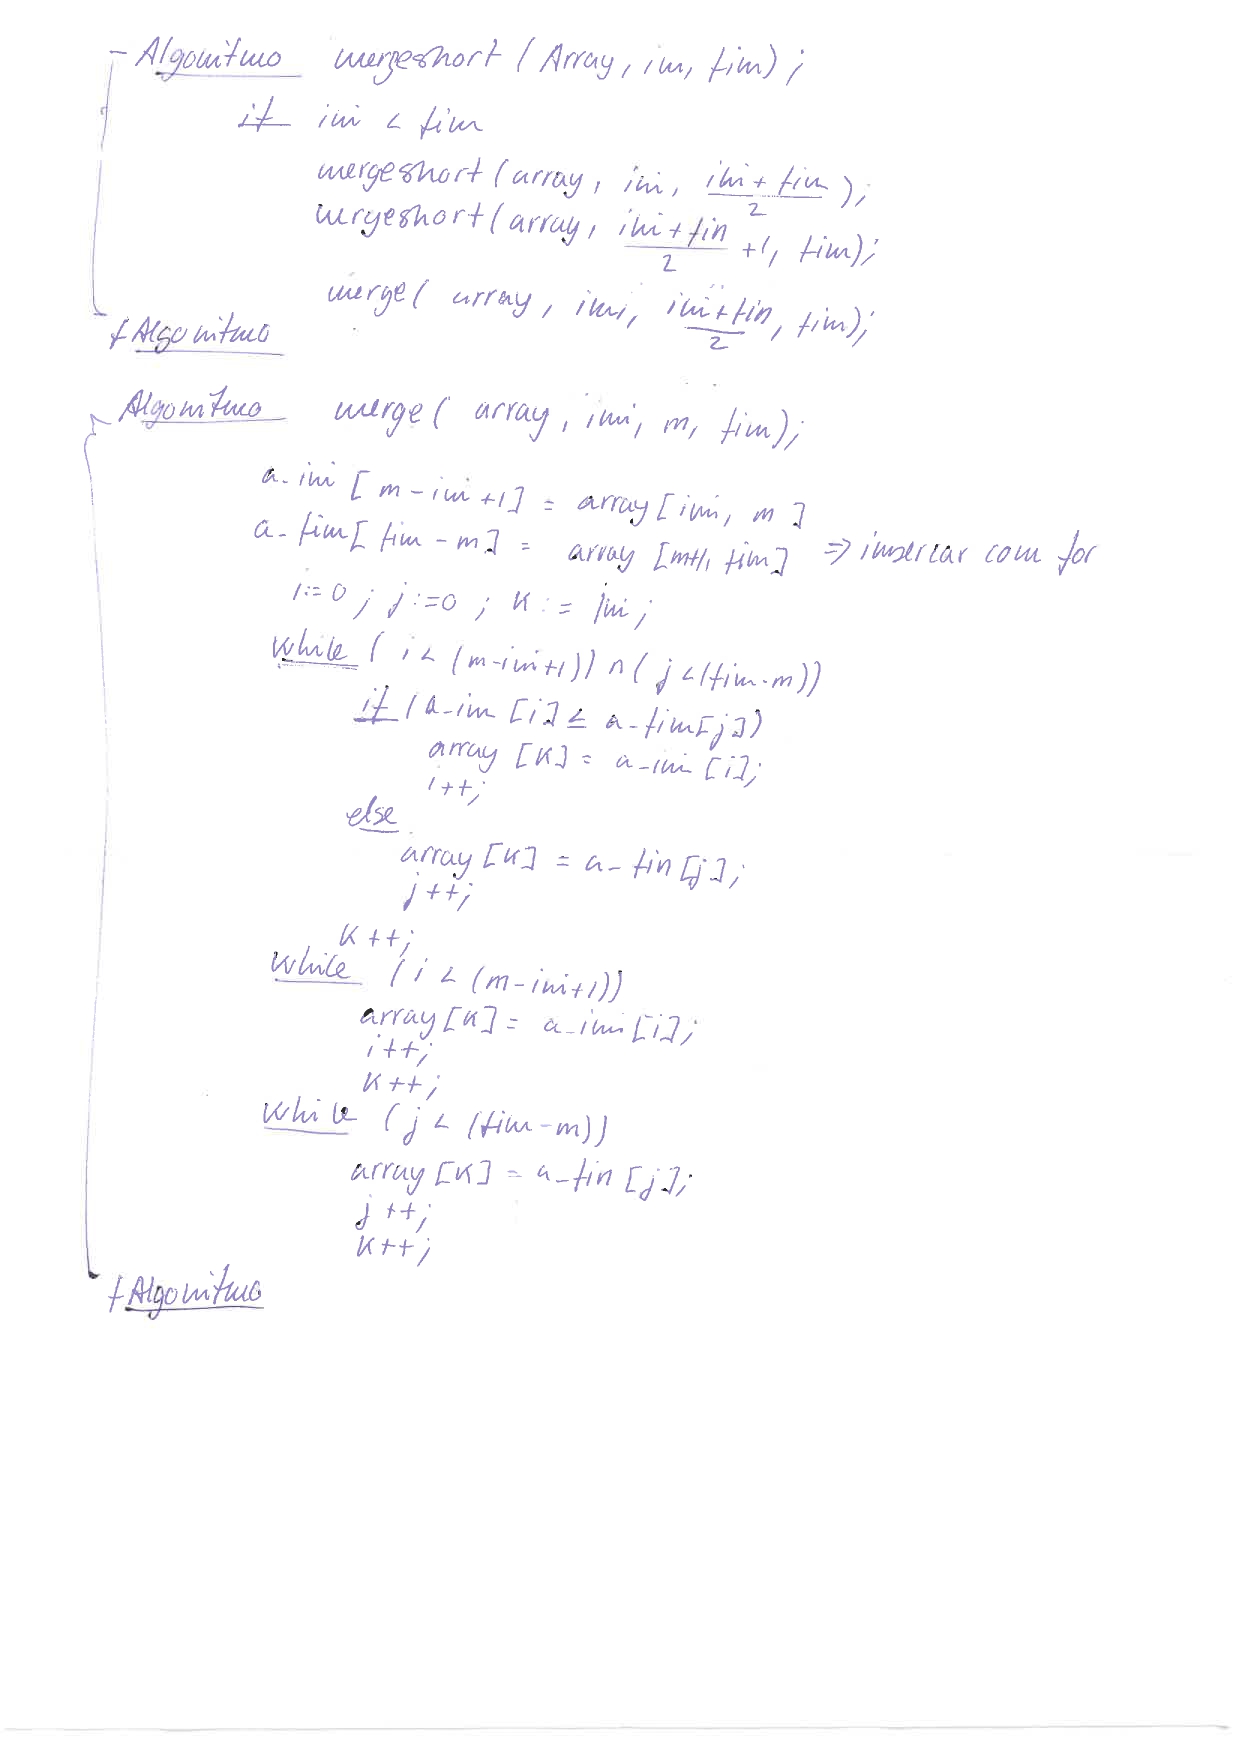 Algoritmo mergeshort (Array, ini, fin);
if ini < fin
mergeshort (array, ini, ini + fin / 2);
mergeshort (array, ini + fin / 2 +1, fin);
merge( array, ini, ini+fin / 2, fin);
fAlgoritmo
Algoritmo merge( array, ini, m, fin);
a_ini [m - ini +1] = array [ini, m]
a_fin [fin - m] = array [m+1, fin] => insertar con for
i:=0 ; j:=0 ; k := ini ;
while ( i < (m-ini+1)) ∩ ( j < (fin-m))
if (a_ini [i] ≤ a_fin[j])
array [k] = a_ini [i];
i++;
else
array [k] = a_fin [j];
j++;
k++;
while (i < (m-ini+1))
array [k] = a_ini [i];
i++;
k++;
while (j < (fin-m))
array [k] = a_fin [j];
j++;
k++;
fAlgoritmo